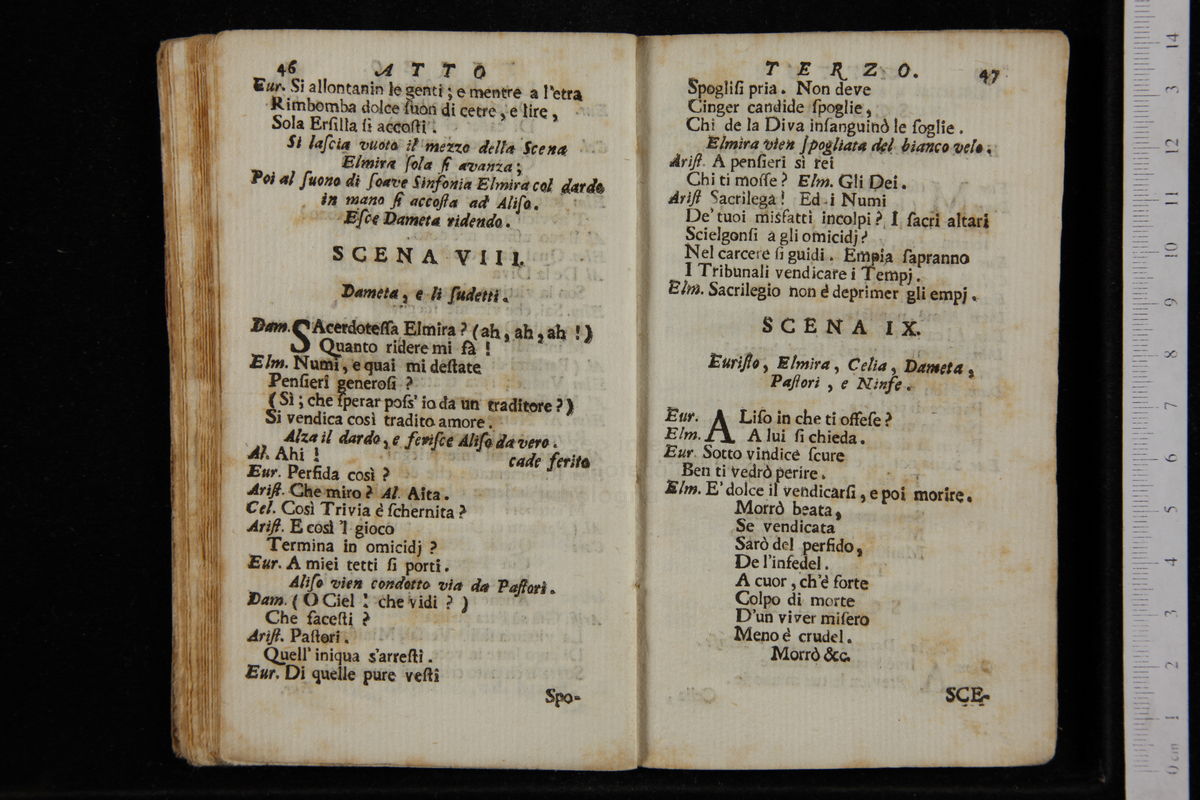 46 ATTO
Eur. Si allontanin le genti; e mentre a l'etra
Rimbomba dolce ſuon di cetre, e lire,
Sola Erſilla ſi accoſti.
Si laſcia vuoto il mezzo della Scena
Elmira ſola ſi avanza;
Poi al ſuono di ſoave Sinfonia Elmira col dardo
in mano ſi accoſta ad Aliſo.
Eſce Dameta ridendo.
SCENA VIII.
Dameta, e li ſudetti.
Dam. SAcerdoteſſa Elmira? (ah, ah, ah!)
Quanto ridere mi fà!
Elm. Numi, e quai mi deſtate
Penſieri generoſi?
(Sì; che ſperar poſs' io da un traditore?)
Si vendica così tradito amore.
Alza il dardo, e feriſce Aliſo da vero.
Al. Ahi! cade ferito
Eur. Perfida così?
Ariſt. Che miro? Al. Aita.
Cel. Così Trivia è ſchernita?
Ariſt. E così 'l gioco
Termina in omicidj?
Eur. A miei tetti ſi porti.
Aliſo vien condotto via da Paſtori.
Dam. (O Ciel! che vidi?)
Che faceſti?
Ariſt. Paſtori.
Quell' iniqua s'arreſti.
Eur. Di quelle pure veſti
Spo-
TERZO. 47
Spogliſi pria. Non deve
Cinger candide ſpoglie,
Chi de la Diva inſanguinò le ſoglie.
Elmira vien ſpogliata del bianco velo.
Ariſt. A penſieri sì rei
Chi ti moſſe? Elm. Gli Dei.
Ariſt Sacrilega! Ed i Numi
De' tuoi misfatti incolpi? I ſacri altari
Scielgonſi a gli omicidj?
Nel carcere ſi guidi. Empia ſapranno
I Tribunali vendicare i Tempj.
Elm. Sacrilegio non è deprimer gli empj.
SCENA IX.
Euriſto, Elmira, Celia, Dameta,
Paſtori, e Ninfe.
Eur. ALiſo in che ti offeſe?
Elm. A lui ſi chieda.
Eur. Sotto vindice ſcure
Ben ti vedrò perire.
Elm. E' dolce il vendicarſi, e poi morire.
Morrò beata,
Se vendicata
Sarò del perfido,
De l'infedel.
A cuor, ch'è forte
Colpo di morte
D'un viver miſero
Meno è crudel.
Morrò &c.
SCE-
0 cm 1 2 3 4 5 6 7 8 9 10 11 12 3 14